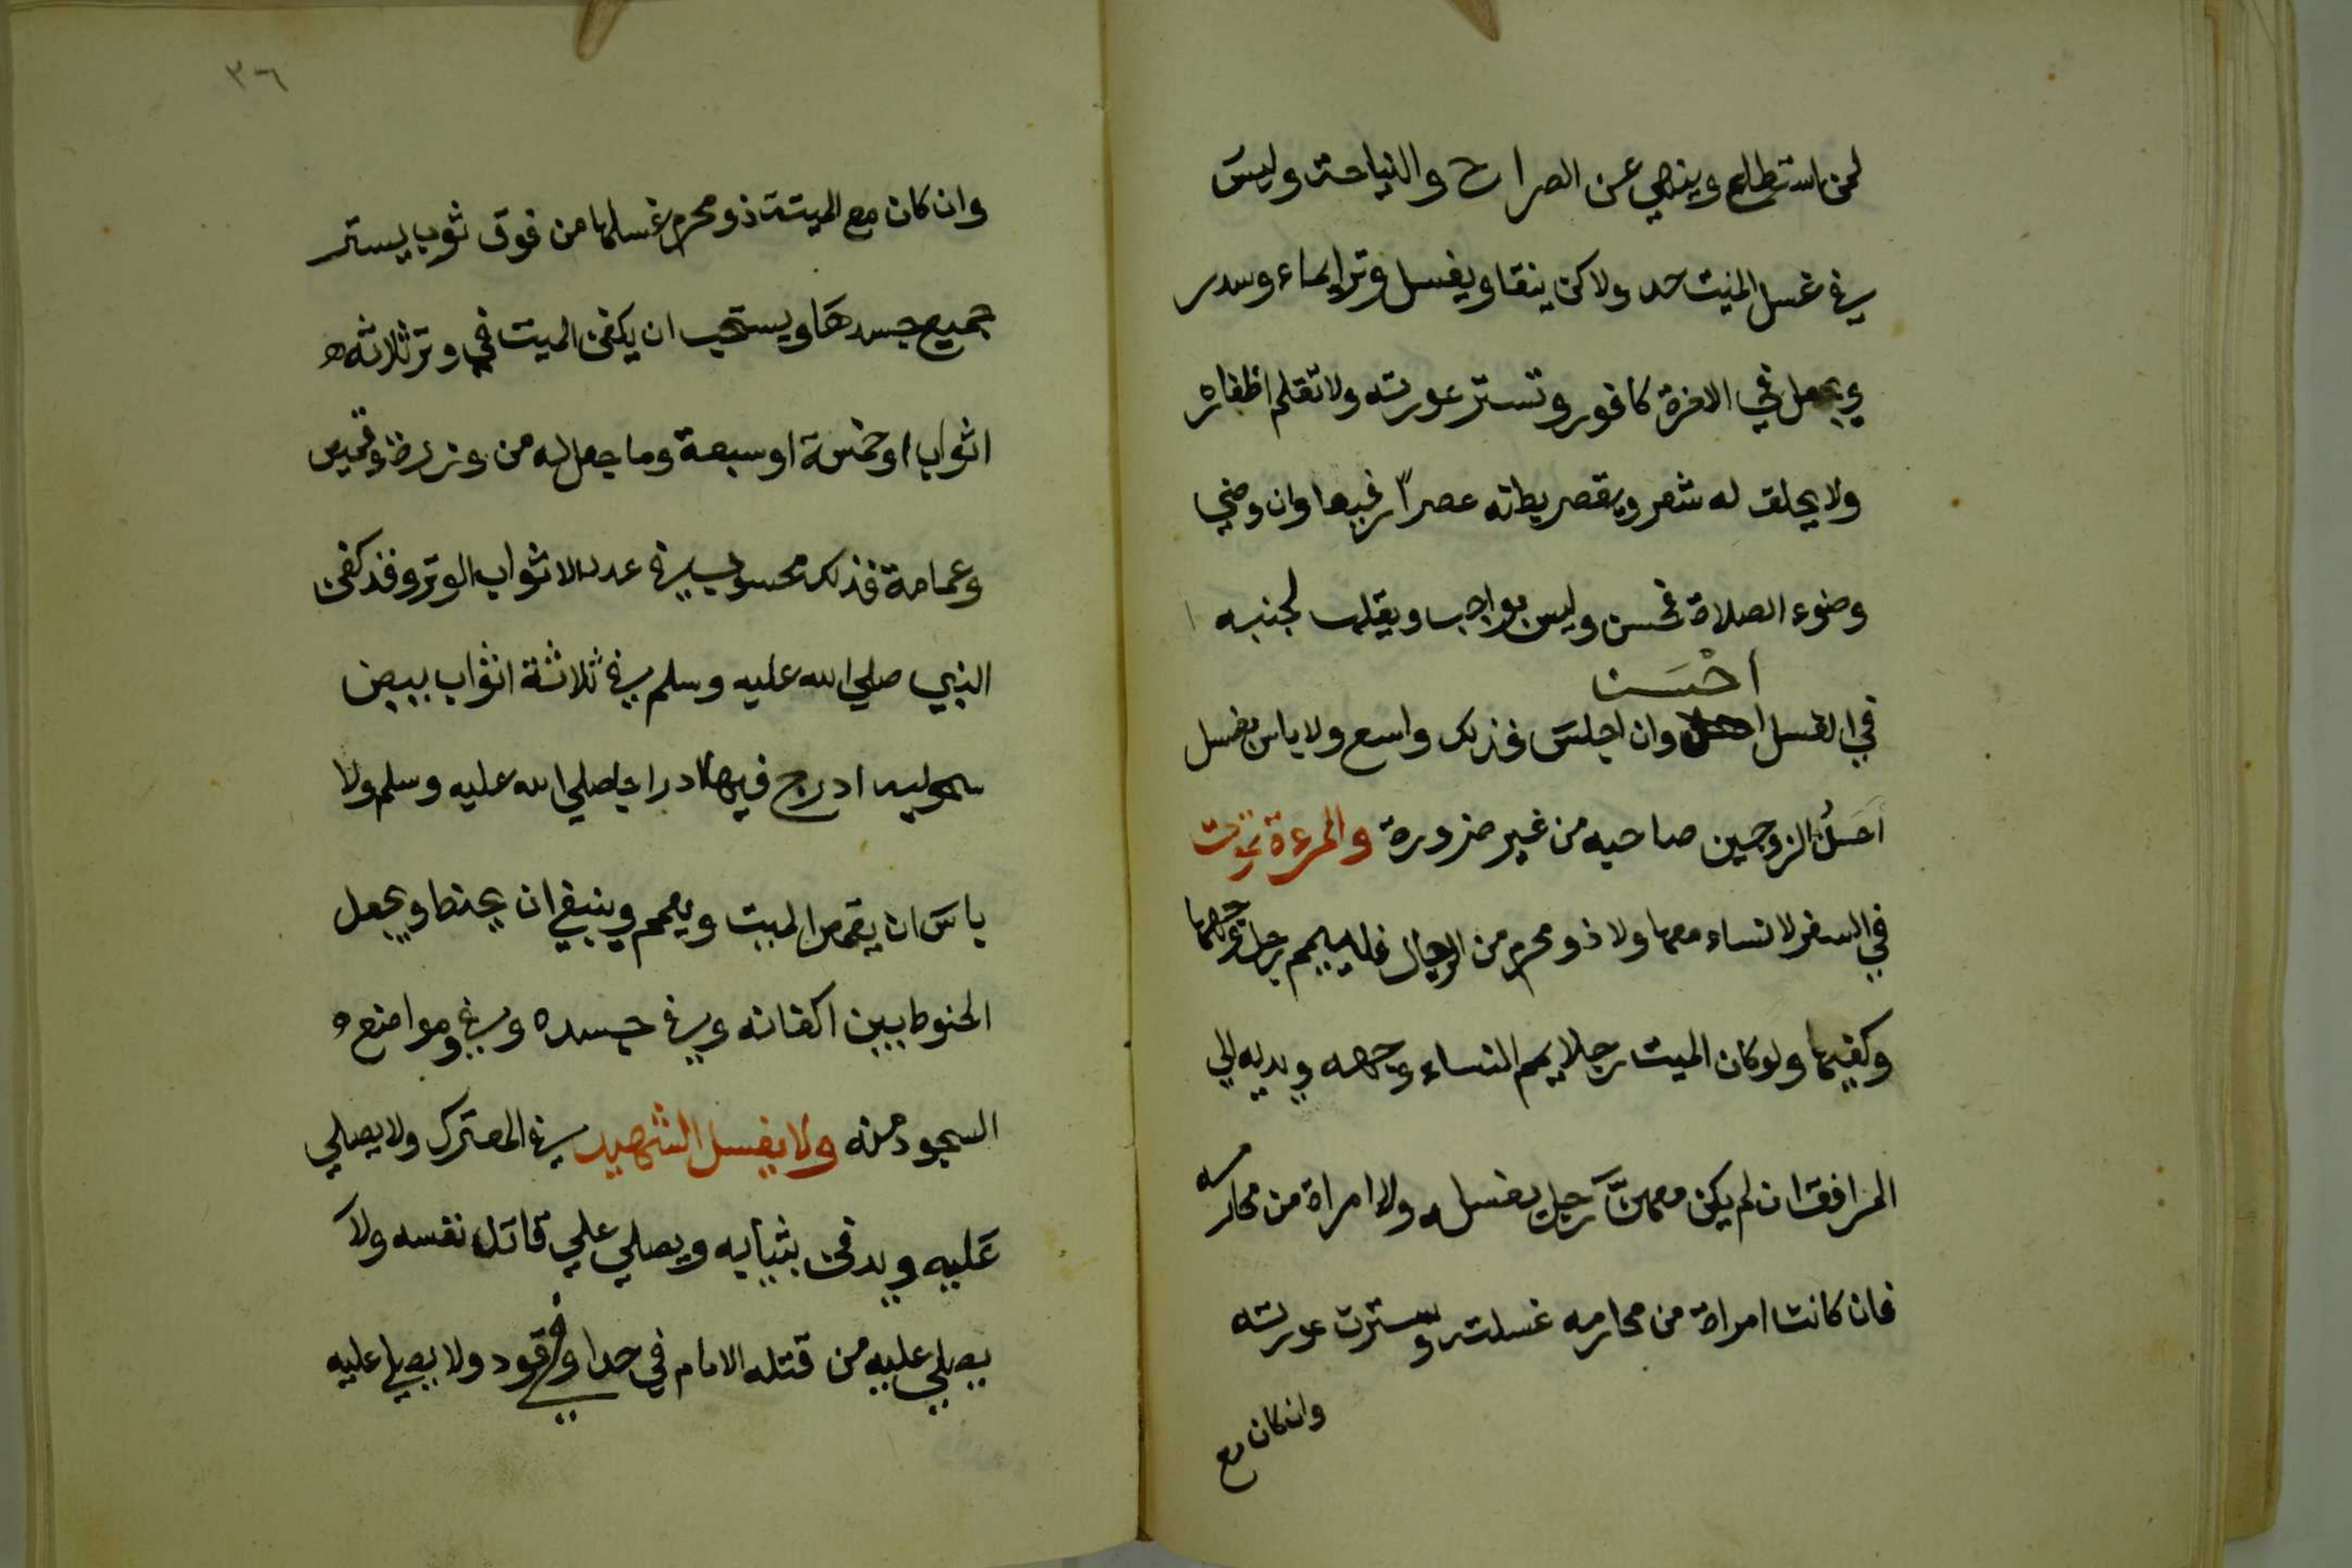 لمن استطاع وينهي عن الصراح والنياحة وليس
في غسل الميت حد ولاكن ينقا ويغسل وترا بماء وسدر
ويجعل في الاخرة كافور وتستر عورته ولا تقلم اظفاره
ولا يحلق له شعر ويعصر بطنه عصرا رفيعا وان وضي
وضوء الصلاة فحسن وليس بواجب ويقلب لجنبه
احْسَن
في الغسل وان اجلس فذلك واسع ولا باس بغسل
احَدُ الزوجين صاحبه من غير ضرورة والمرءة تموت
في السفر لا نساء معها ولا ذو محرم من الرجال فلييمم رجل وجهها
وكفيها ولو كان الميت رجلا يمم النساء وجهه ويديه الي
المرافق ان لم يكن معهنَّ رجل يغسله ولا امراة من محارمه
فان كانت امراة من محارمه غسلته وسترت عورته
وان كان مع
٣٦
وان كان مع الميتة ذو محرم غسلها من فوق ثوب يستر
جميع جسدها ويستحب ان يكفن الميت في وتر ثلاثه
اثواب او خمسة او سبعة وما جعل له من وزرة وقميص
وعمامة فذلك محسوب في عدد الاثواب الوتر وقد كفن
النبي صلي الله عليه وسلم في ثلاثة اثواب بيض
سحوليه ادرج فيها ادراجا صلي الله عليه وسلم ولا
باسَ ان يقمص الميت ويعمم وينبغي ان يحنط ويجعل
الحنوط بين اكفانه وفي جسده وفي ومواضع
السجود منه ولا يغسل الشهيد في المعترك ولا يصلي
عَليه ويدفن بثيابه ويصلي علي قاتل نفسه ولا
يصلي عليه من قتله الامام في حد او في قود ولا يصلي عليه